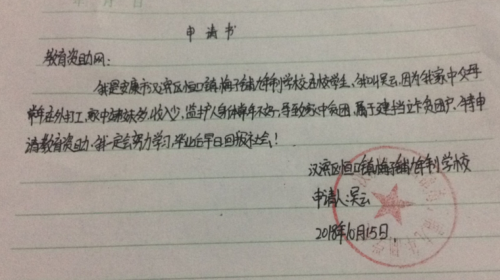 申请书
教育资助网：
我是安康市汉滨区恒口镇梅子铺九年制学校在校学生，我叫吴云，因为我家中父母
常年在外打工，家中缺钱，收入少，监护人身体常年不好，导致家中贫困，属于建档立卡贫困户，今特申
请教育资助，我一定会努力学习，毕业后早日回报社会！
汉滨区恒口镇梅子铺九年制学校
申请人：吴云
2018年10月15日